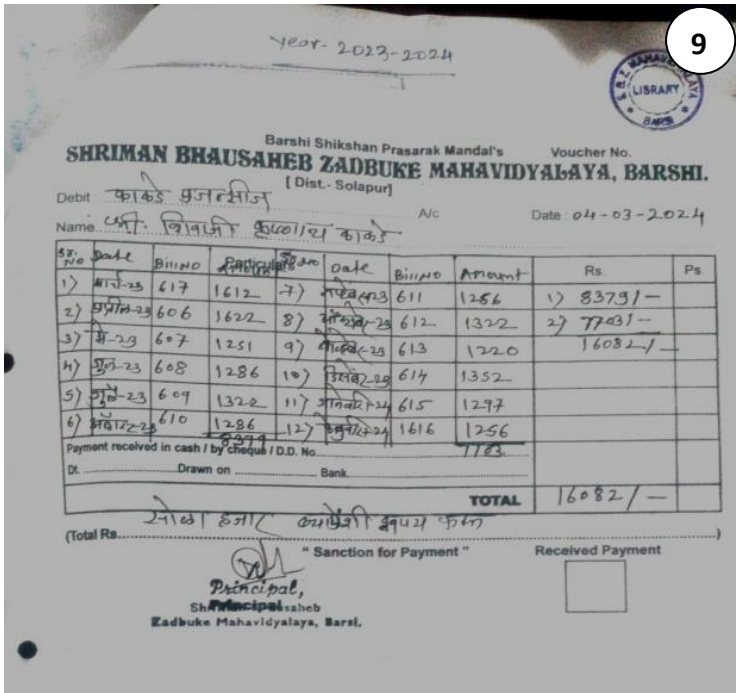 9
Year- 2023-2024
S. B. Z. MAHAVIDYALAYA
LIBRARY
BARSI
Barshi Shikshan Prasarak Mandal's Voucher No.
SHRIMAN BHAUSAHEB ZADBUKE MAHAVIDYALAYA, BARSHI.
[ Dist.- Solapur]
Debit काकडे एजन्सीज
A/c Date 04-03-2024
Name श्री. शिवाजी काकडे
Sr. No Date Bill No Particulars Amount Sr. No Date Bill No Amount Rs. Ps.
1) मार्च-23 617 1612 7) 23 611 1256 1) 8379/-
2) एप्रिल-23 606 1622 8) -23 612 1322 2) 7703/-
3) मे-23 607 1251 9) -23 613 1220 16082/-
4) जुन-23 608 1286 10) 614 1352
5) जुलै-23 609 1322 11) -24 615 1297
6) 610 1286 12) -24 1616 1256
8379 7703
Payment received in cash / by cheque / D.D. No.
Dt. Drawn on Bank
TOTAL 16082/-
सोळा हजार ब्याऐंशी रुपये फक्त
(Total Rs. )
" Sanction for Payment " Received Payment
Principal,
Principal
Zadbuke Mahavidyalaya, Barsi.